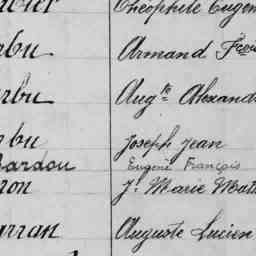 Théophile Eugène
rbu Armand
rbu Aug.te Alexand
rbu Joseph Jean
Bardou Eugène François
ron J. Marie
rran Auguste Lucien